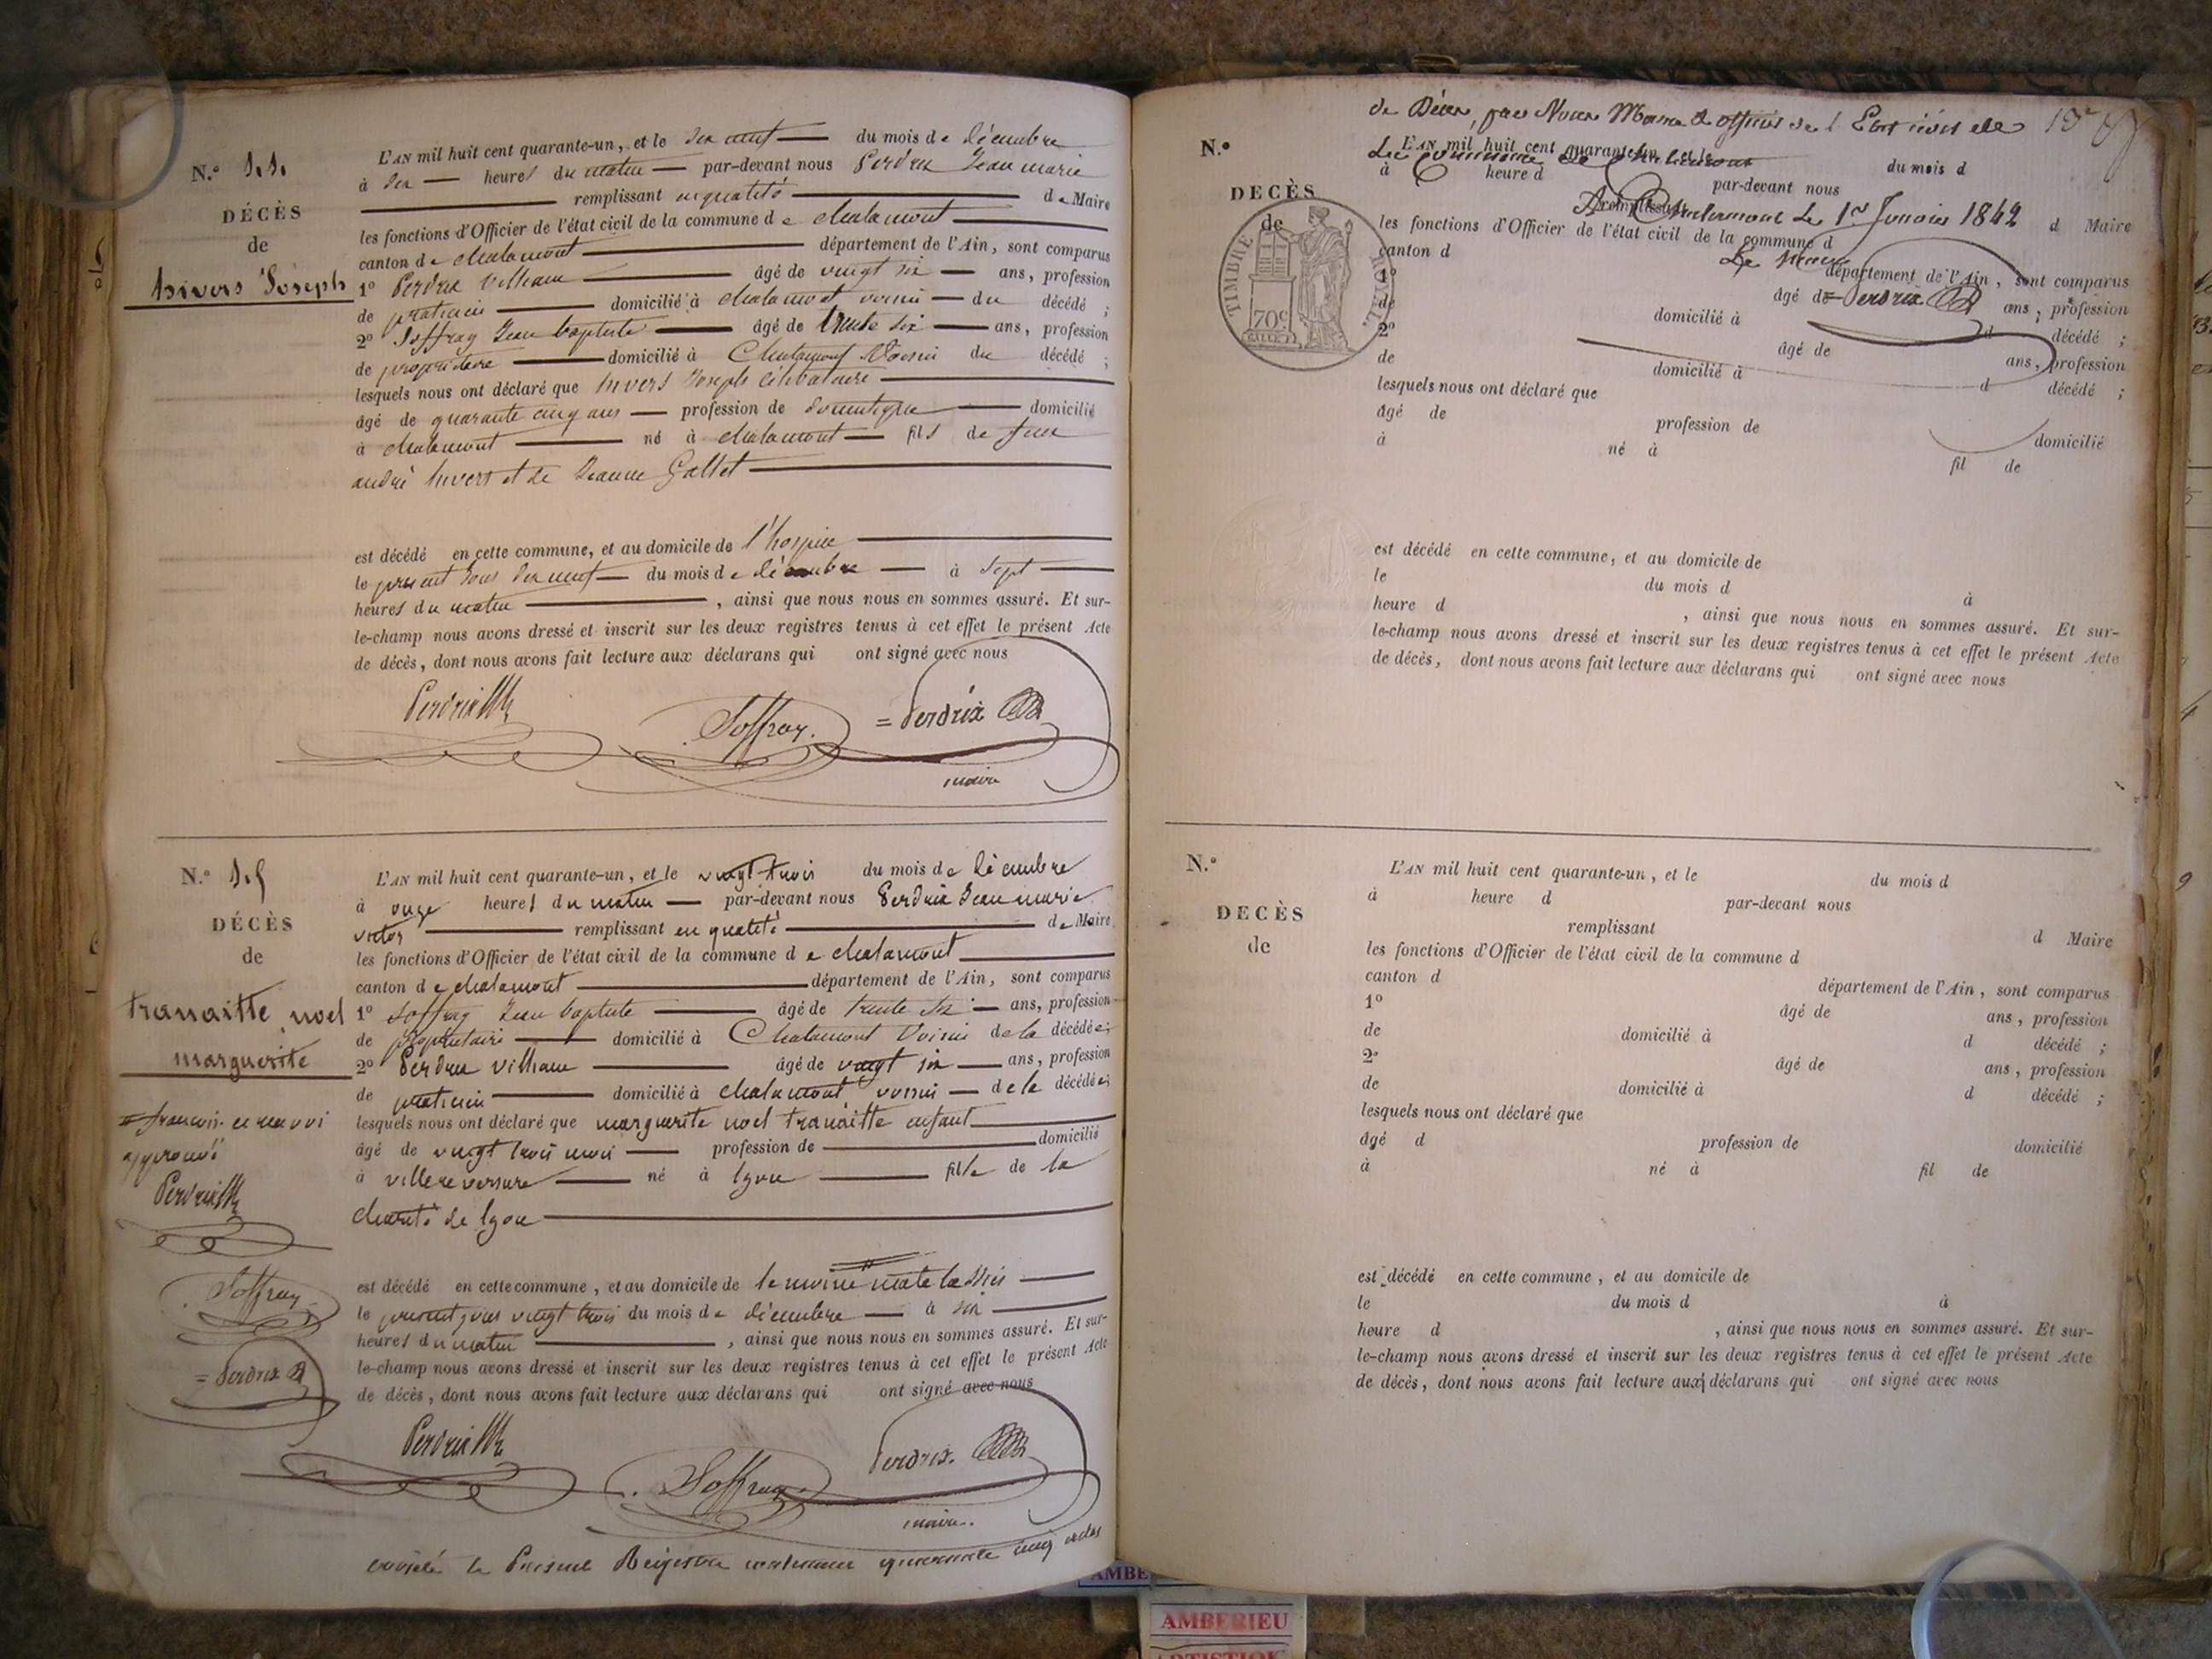 N.º
DÉCÈS
de
hivers Joseph
L'AN mil huit cent quarante-un, et le dix neuf du mois de décembre
à dix heures du matin par-devant nous Perdrix Jean marie
remplissant en qualité de Maire
les fonctions d'Officier de l'état civil de la commune de chalamont
canton de chalamont département de l'Ain, sont comparus
1º Perdrix villiam âgé de vingt six ans, profession
de praticien domicilié à chalamont voisin du décédé ;
2º Joffray Jean baptiste âgé de trente six ans, profession
de propriétaire domicilié à Chalamont Voisin du décédé ;
lesquels nous ont déclaré que hivers Joseph célibataire
âgé de quarante cinq ans profession de domestique domicilié
à chalamont né à chalamont fils de feu
andré hivers et de Jeanne Gallet
est décédé en cette commune, et au domicile de l'hospice
le présent jour dix neuf du mois de décembre à sept
heures du matin , ainsi que nous nous en sommes assuré. Et sur-
le-champ nous avons dressé et inscrit sur les deux registres tenus à cet effet le présent Acte
de décès, dont nous avons fait lecture aux déclarans qui ont signé avec nous
Perdrix
Joffray.
= Perdrix
maire
N.º
DÉCÈS
de
tranaitte noel
marguerite
L'AN mil huit cent quarante-un, et le vingt trois du mois de décembre
à onze heures du matin par-devant nous Perdrix Jean marie
victor remplissant en qualité de Maire
les fonctions d'Officier de l'état civil de la commune de chalamont
canton de chalamont département de l'Ain, sont comparus
1º Joffray Jean baptiste âgé de trente six ans, profession
de propriétaire domicilié à Chalamont Voisin de la décédée ;
2º Perdrix villiam âgé de vingt six ans, profession
de praticien domicilié à chalamont voisin de la décédée ;
lesquels nous ont déclaré que marguerite noel tranaitte enfant
âgé de vingt trois mois profession de domicilié
à villereversure né à lyon fille de la
charité de lyon
# francois renvoi
approuvé
Perdrix
Joffray
= Perdrix
est décédé en cette commune, et au domicile de
le présent jour vingt trois du mois de décembre à six
heures du matin , ainsi que nous nous en sommes assuré. Et sur-
le-champ nous avons dressé et inscrit sur les deux registres tenus à cet effet le présent Acte
de décès, dont nous avons fait lecture aux déclarans qui ont signé avec nous
Perdrix
Joffray
Perdrix.
maire.
le Présent Registre contenant quarante cinq actes
de Décès, par Nous Maire & officier de l'Etat civil de
la Commune de Chalamont
A Chalamont Le 1er Janvier 1842
Le Maire
= Perdrix
N.º
DECÈS
de
TIMBRE ROYAL.
70c
L'AN mil huit cent quarante-un, et le du mois d
à heure d par-devant nous
remplissant d Maire
les fonctions d'Officier de l'état civil de la commune d
canton d département de l'Ain, sont comparus
1º âgé de ans, profession
de domicilié à d décédé ;
2º âgé de ans, profession
de domicilié à d décédé ;
lesquels nous ont déclaré que
âgé de profession de domicilié
à né à fil de
est décédé en cette commune, et au domicile de
le du mois d à
heure d , ainsi que nous nous en sommes assuré. Et sur-
le-champ nous avons dressé et inscrit sur les deux registres tenus à cet effet le présent Acte
de décès, dont nous avons fait lecture aux déclarans qui ont signé avec nous
N.º
DECÈS
de
L'AN mil huit cent quarante-un, et le du mois d
à heure d par-devant nous
remplissant d Maire
les fonctions d'Officier de l'état civil de la commune d
canton d département de l'Ain, sont comparus
1º âgé de ans, profession
de domicilié à d décédé ;
2º âgé de ans, profession
de domicilié à d décédé ;
lesquels nous ont déclaré que
âgé d profession de domicilié
à né à fil de
est décédé en cette commune, et au domicile de
le du mois d à
heure d , ainsi que nous nous en sommes assuré. Et sur-
le-champ nous avons dressé et inscrit sur les deux registres tenus à cet effet le présent Acte
de décès, dont nous avons fait lecture aux déclarans qui ont signé avec nous
AMBE
AMBERIEU